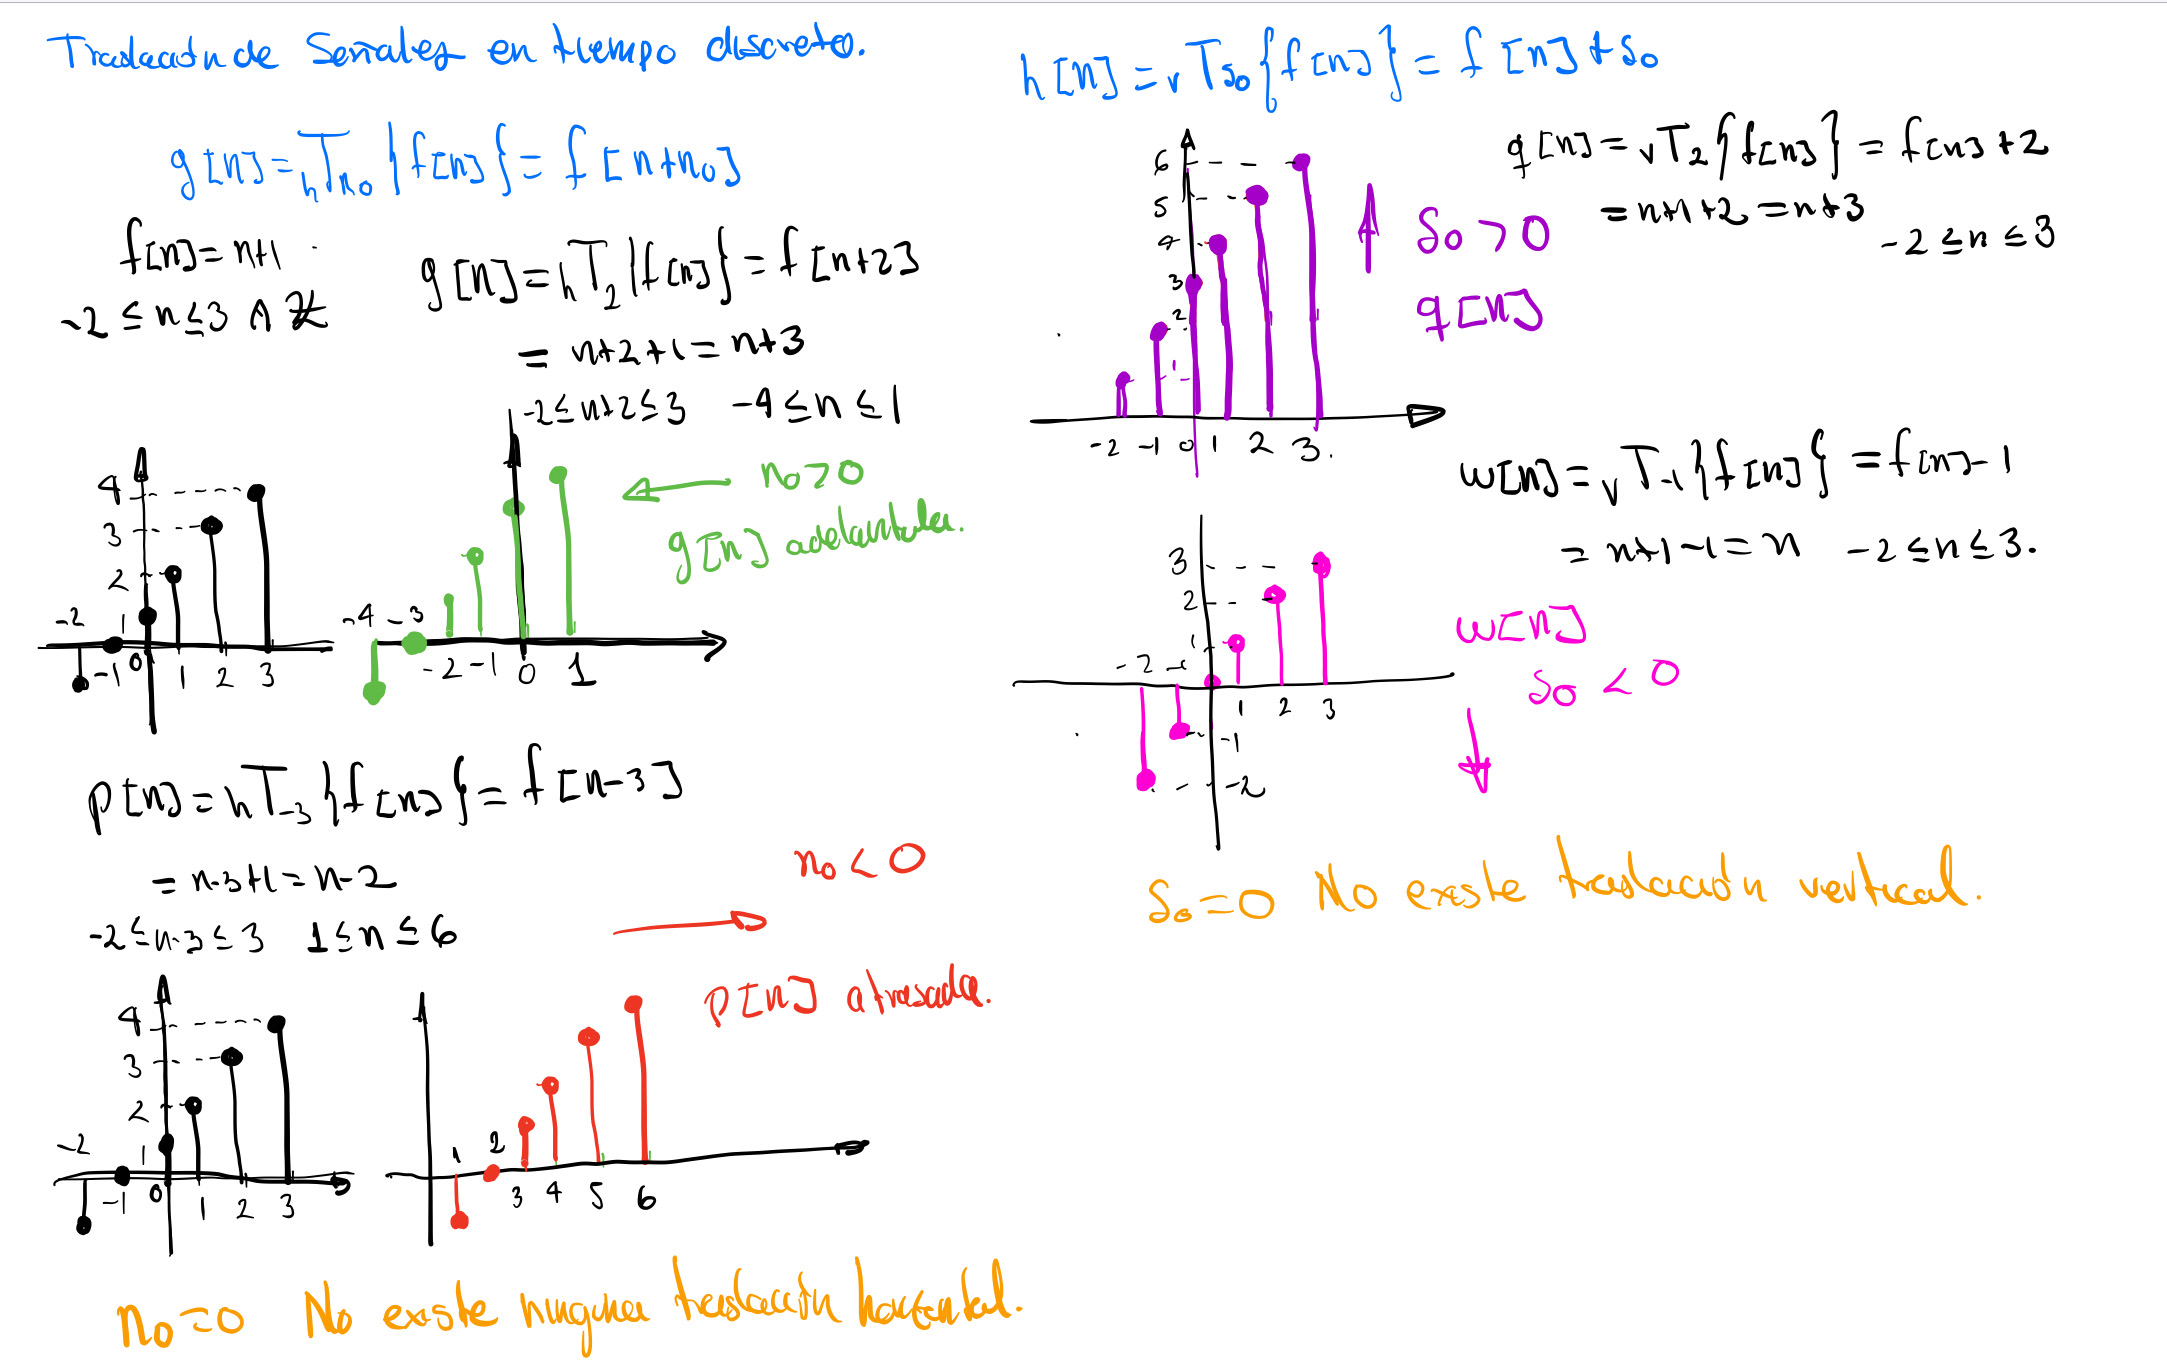 Traslación de Señales en tiempo discreto.
g[n] = hTn0 {f[n]} = f[n+n0]
f[n] = n+1
-2 ≤ n ≤ 3 ∧ ℤ
g[n] = hT2 {f[n]} = f[n+2]
= n+2+1 = n+3
-2 ≤ n+2 ≤ 3   -4 ≤ n ≤ 1
4
3
2
1
-2
-1 0 1 2 3
n0 > 0
g[n] adelantada.
-4 -3
-2 -1 0 1
p[n] = hT-3 {f[n]} = f[n-3]
= n-3+1 = n-2
-2 ≤ n-3 ≤ 3   1 ≤ n ≤ 6
n0 < 0
p[n] atrasada.
4
3
2
1
-2
-1 0 1 2 3
1 2
3 4 5 6
n0 = 0 No existe ninguna traslación horizontal.
h[n] = vTs0 {f[n]} = f[n] + s0
q[n] = vT2 {f[n]} = f[n] + 2
= n+1+2 = n+3
-2 ≤ n ≤ 3
6
5
4
3
2
1
-2 -1 0 1 2 3.
s0 > 0
q[n]
w[n] = vT-1 {f[n]} = f[n] - 1
= n+1-1 = n   -2 ≤ n ≤ 3.
3
2
1
-2 -1
1 2 3
-1
-2
w[n]
s0 < 0
s0 = 0 No existe traslación vertical.